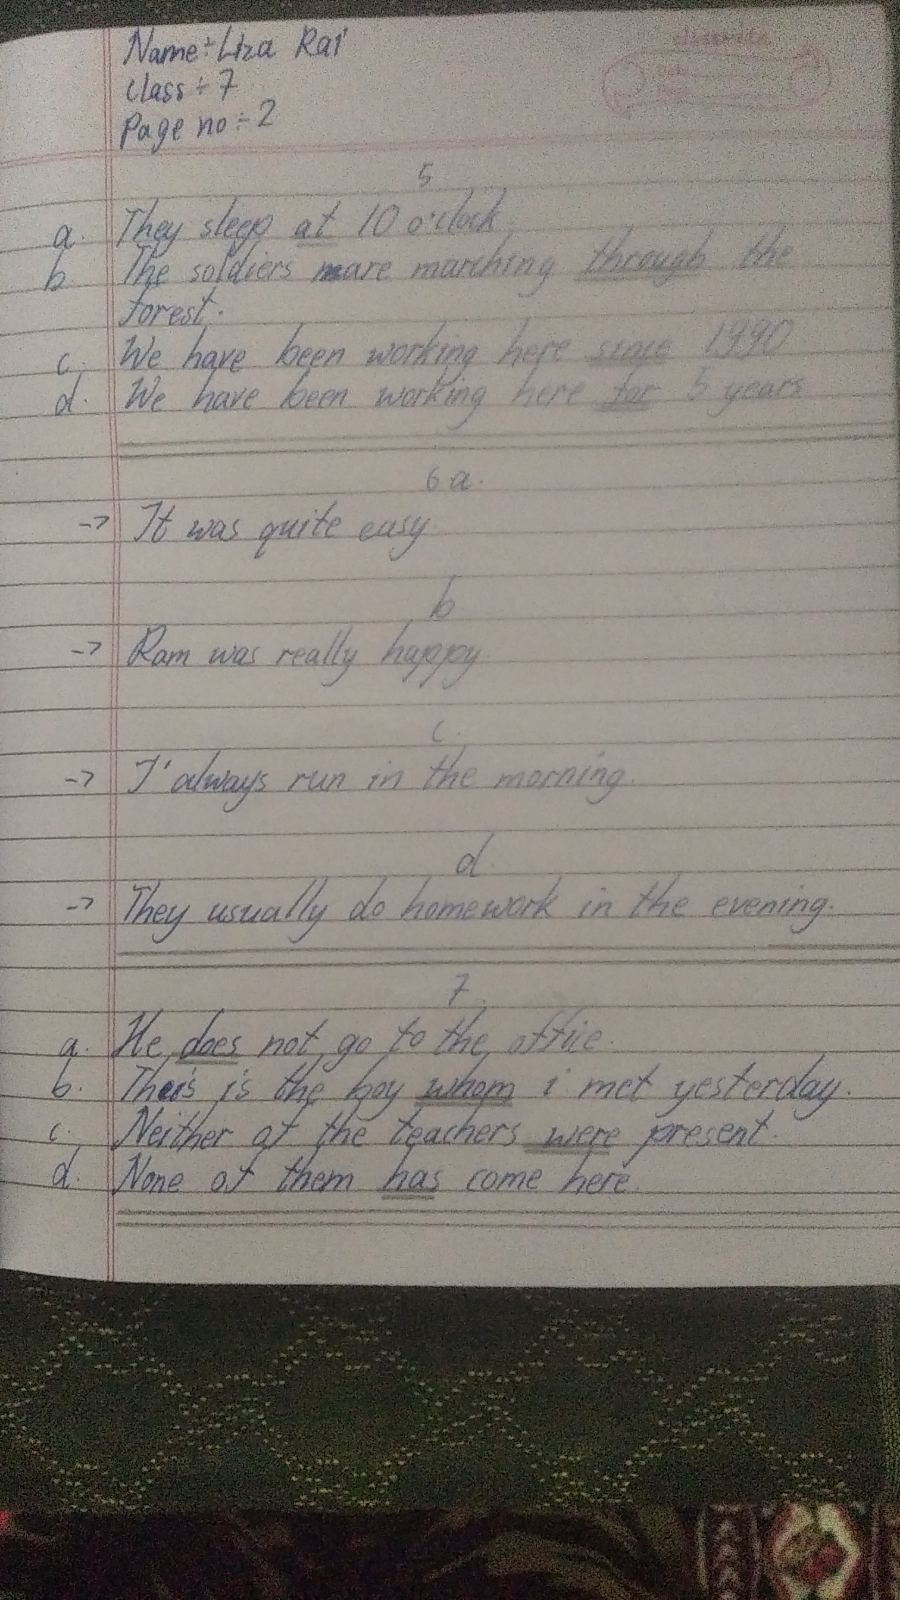 Name÷ Liza Rai
class ÷ 7
Page no ÷ 2
5
a. They sleep at 10 o'clock
b. The soldiers are marching through the
forest.
c. We have been working here since 1990
d. We have been working here for 5 years
6 a.
-> It was quite easy.
b
-> Ram was really happy.
c.
-> I always run in the morning.
d.
-> They usually do homework in the evening.
7.
a. He does not go to the office.
b. This is the boy whom i met yesterday.
c. Neither of the teachers were present.
d. None of them has come here.